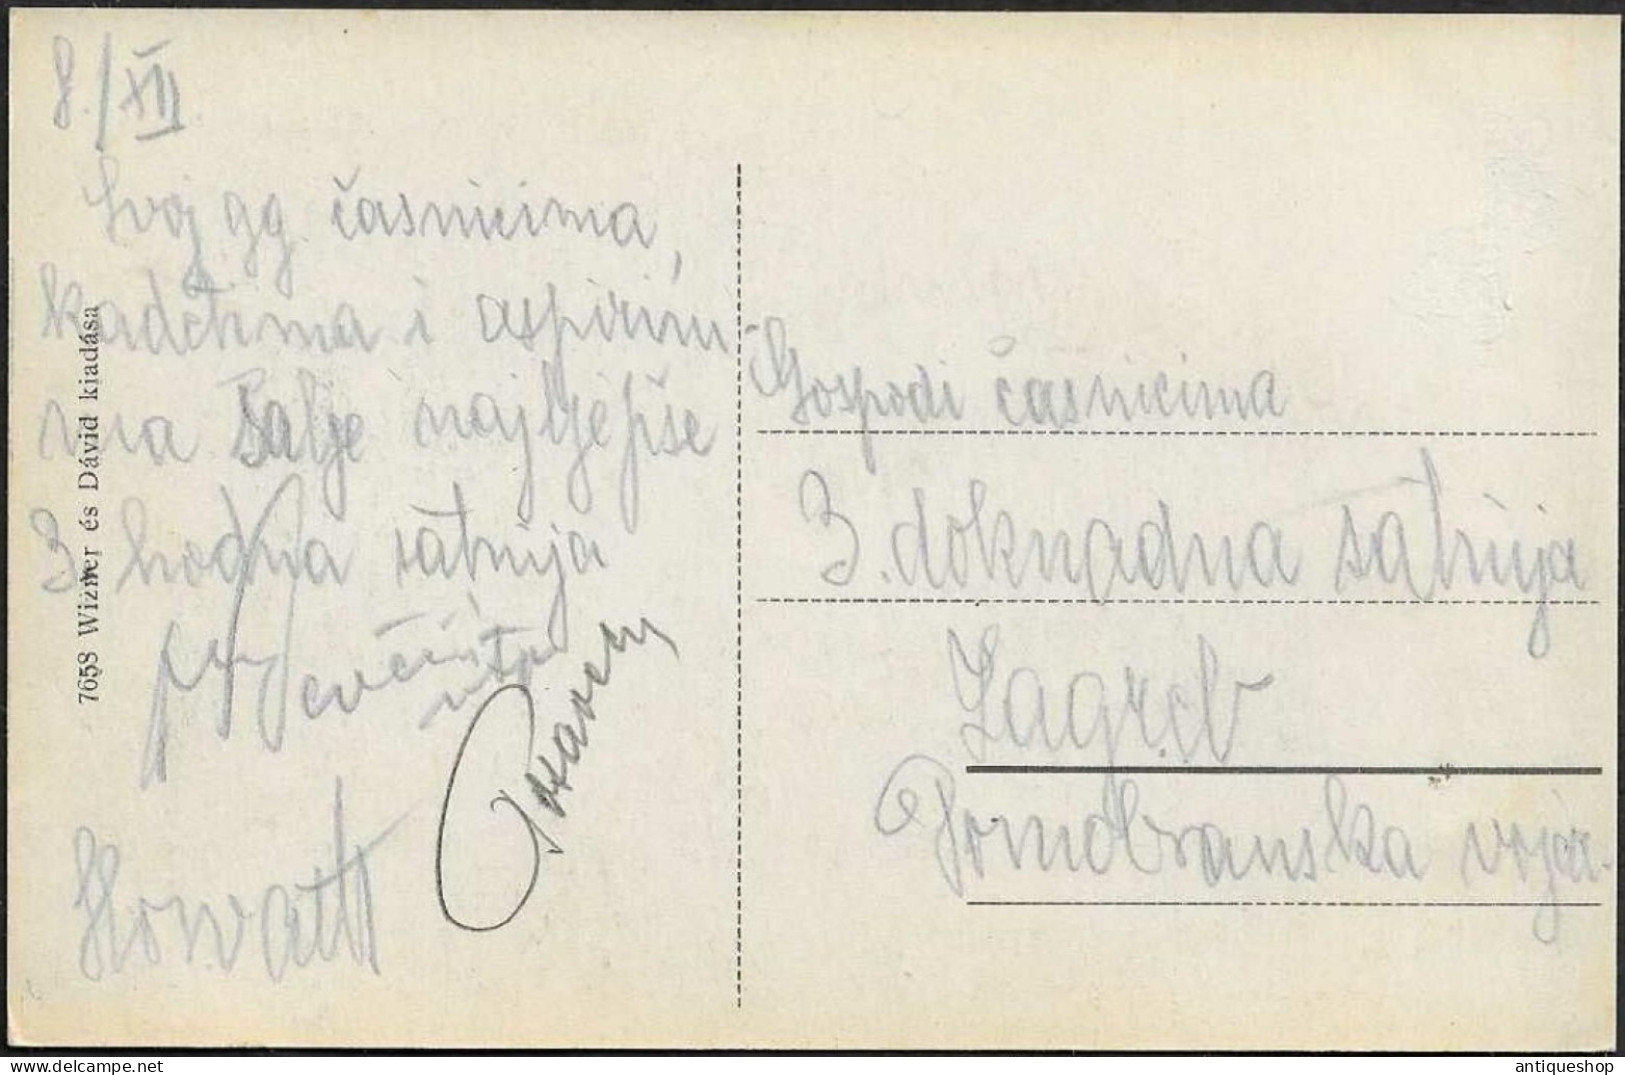 8./XII
Svoj gg. časnicima,
kadetima i aspirim-
ma šalje najljepše
3 hodna satnija
Horvath
7658 Wizner és Dávid kiadása
Gospodi časnicima
3. doknadna satnija
Zagreb
Domobranska vojar.
antiqueshop